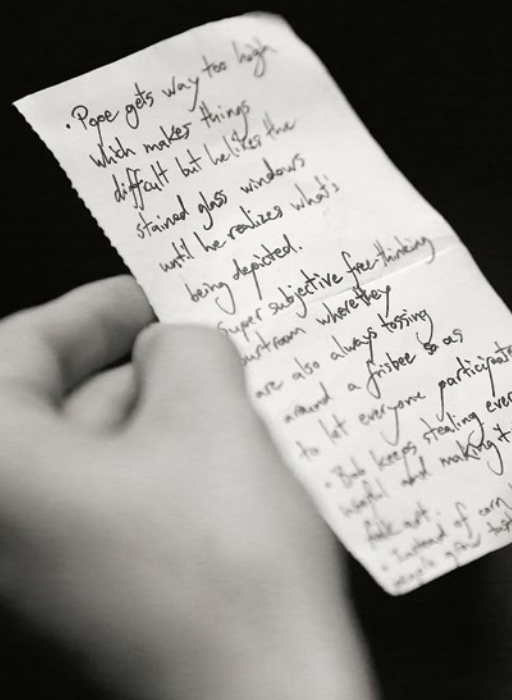 • Pope gets way too high
which makes things
difficult but he likes the
stained glass windows
until he realizes what's
being depicted.
super subjective free-thinking
courtroom where they
are also always tossing
around a frisbee so as
to let everyone participate
• Bob keeps stealing
useful and making it
folk art.
• Instead of corn
people